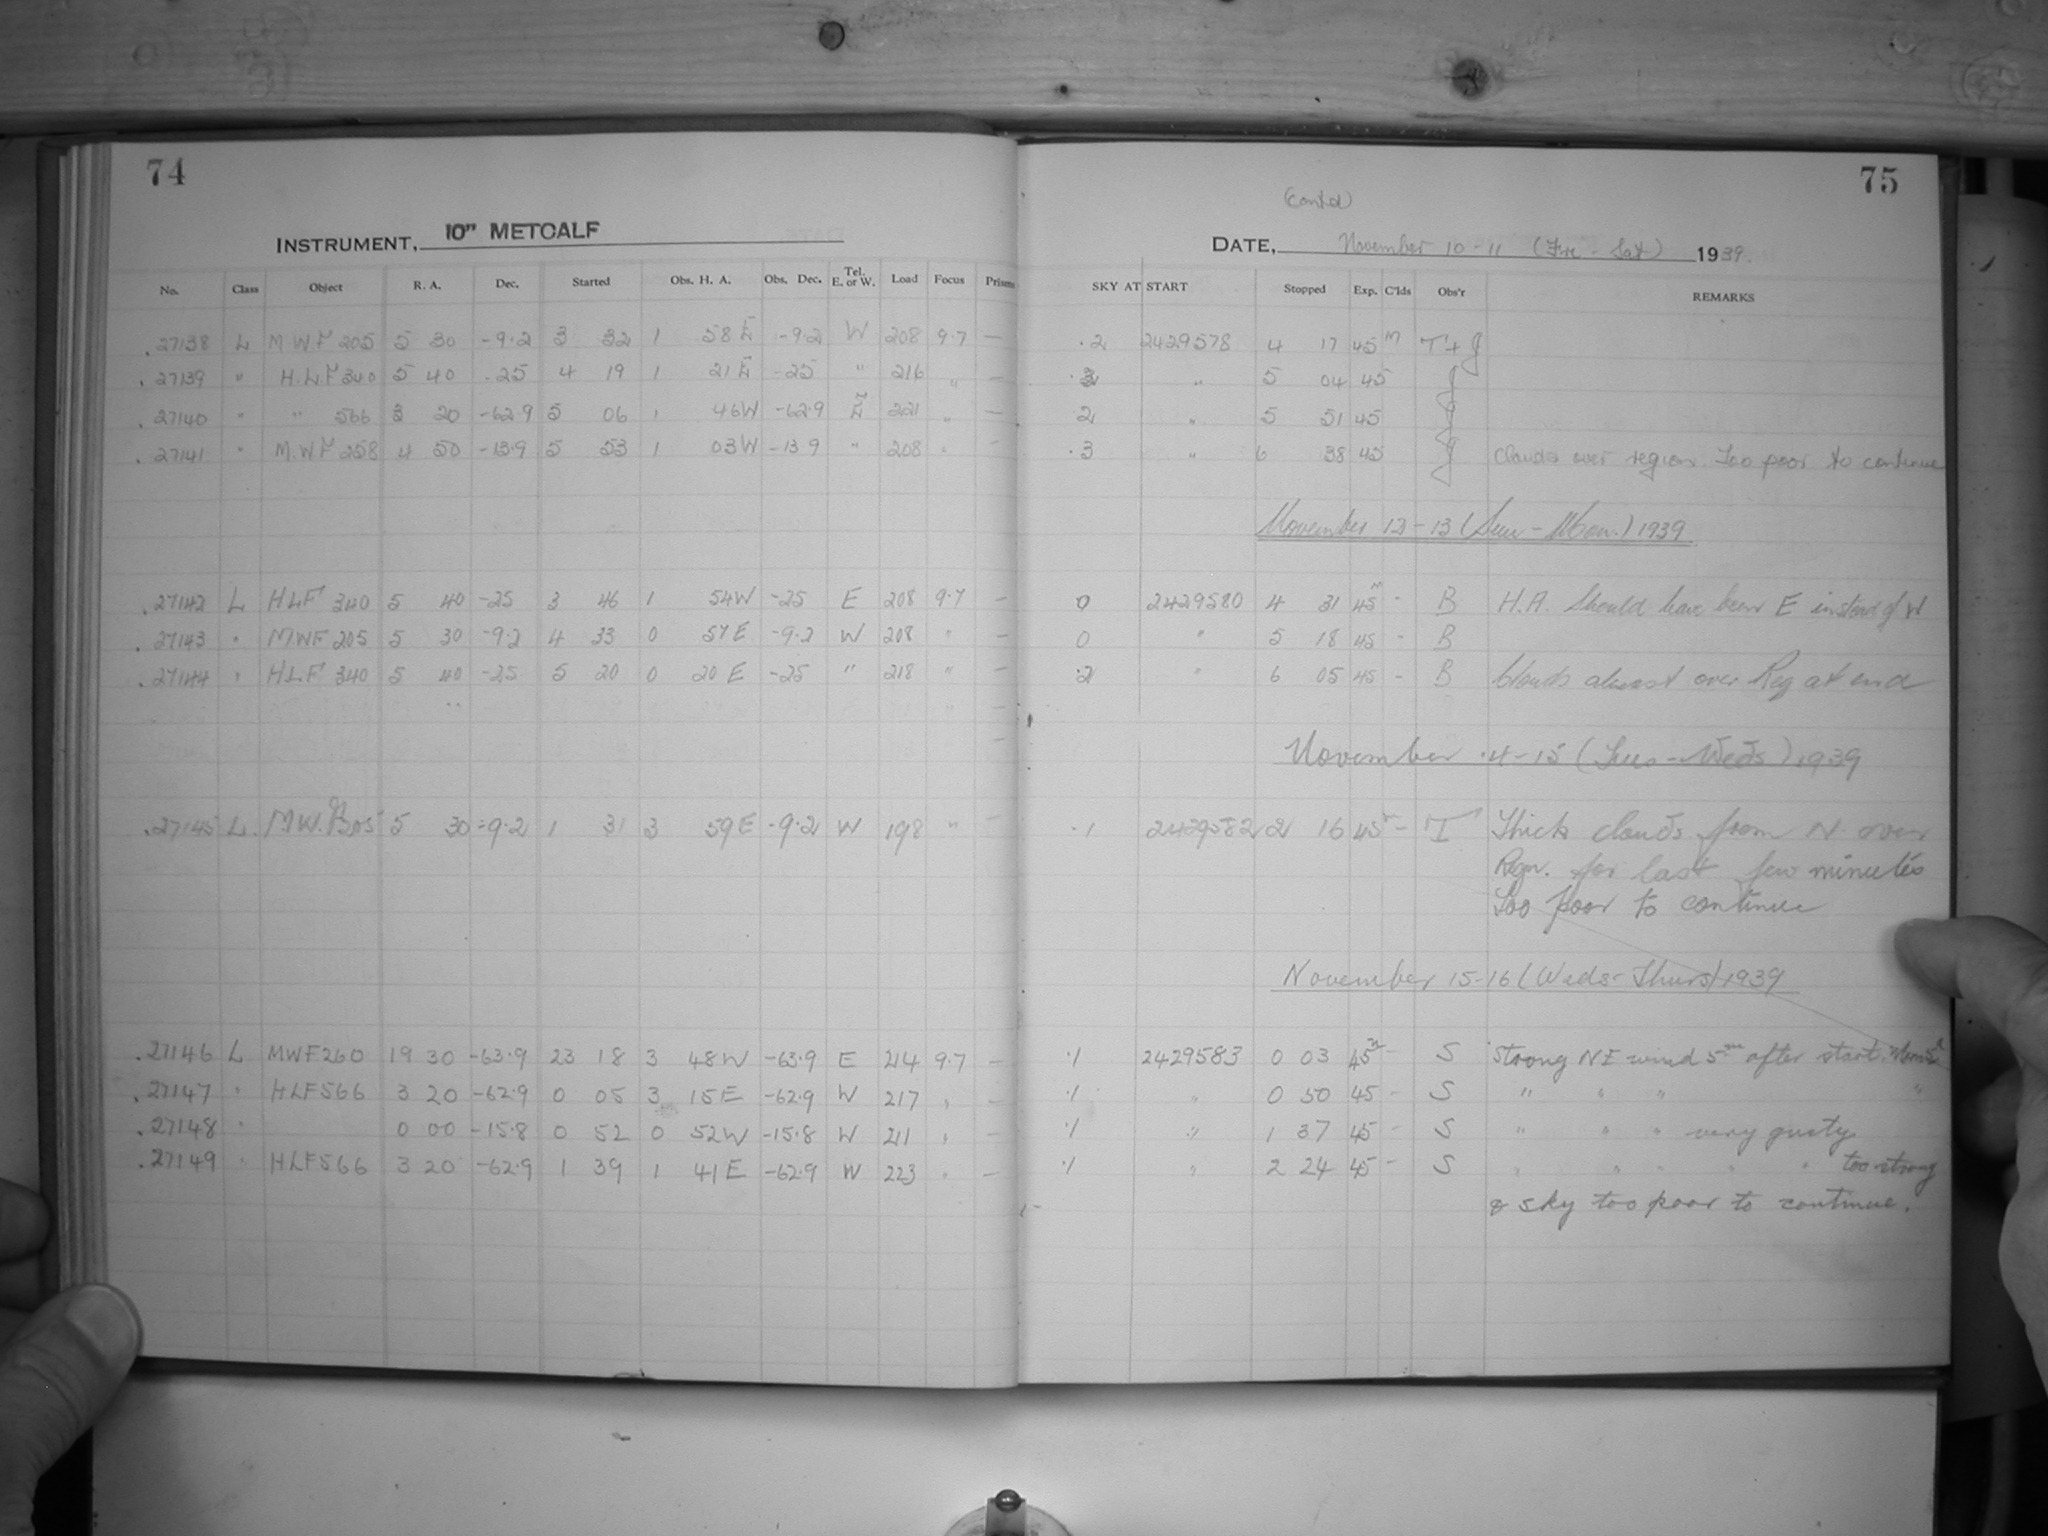 74
INSTRUMENT, 10" METCALF
No. Class Object R. A. Dec. Started Obs. H. A. Obs. Dec. Tel. E. or W. Load Focus Prisms
27138 L MWF 205 5 30 -9.2 3 32 1 58 E -9.2 W 208 9.7 —
27139 " HLF 340 5 40 -25 4 19 1 21 E -25 " 216 " —
27140 " " 566 3 20 -62.9 5 06 1 46W -62.9 E 221 " —
27141 " MWF 258 4 50 -13.9 5 53 1 03W -13.9 " 208 " —
27142 L HLF 340 5 40 -25 3 46 1 54W -25 E 208 9.7 —
27143 " MWF 205 5 30 -9.2 4 33 0 57E -9.2 W 208 " —
27144 " HLF 340 5 40 -25 5 20 0 20 E -25 " 218 " —
27145 L. 5 30 -9.2 1 31 3 59E -9.2 W 198 " —
27146 L MWF260 19 30 -63.9 23 18 3 48W -63.9 E 214 9.7 —
27147 " HLF566 3 20 -62.9 0 05 3 15E -62.9 W 217 " —
27148 " 0 00 -15.8 0 52 0 52W -15.8 W 211 " —
27149 " HLF566 3 20 -62.9 1 39 1 41E -62.9 W 223 " —
75
(contd)
DATE, November 10-11 (Fri - Sat) 1939.
SKY AT START Stopped Exp. C'lds Obs'r REMARKS
.2 2429578 4 17 45 m T+J
" 5 04 45 J
2 " 5 51 45 J
.3 " 6 38 45 J Clouds over region. Too poor to continue
November 12-13 (Sun-Mon.) 1939
0 2429580 4 31 45m - B H.A. Should have been E instead of W
0 " 5 18 45 - B
.2 " 6 05 45 - B Clouds almost over Reg at end
November 14-15 (Tues-Weds) 1939
.1 2429582 2 16 45m - T Thick clouds from N. over
Regn. for last few minutes
Too poor to continue
November 15-16 (Weds-Thurs) 1939
.1 2429583 0 03 45m - S Strong NE wind 5m after start.
.1 " 0 50 45 - S " " " "
.1 " 1 37 45 - S " " " very gusty
.1 " 2 24 45 - S " " " " " too strong
& sky too poor to continue.